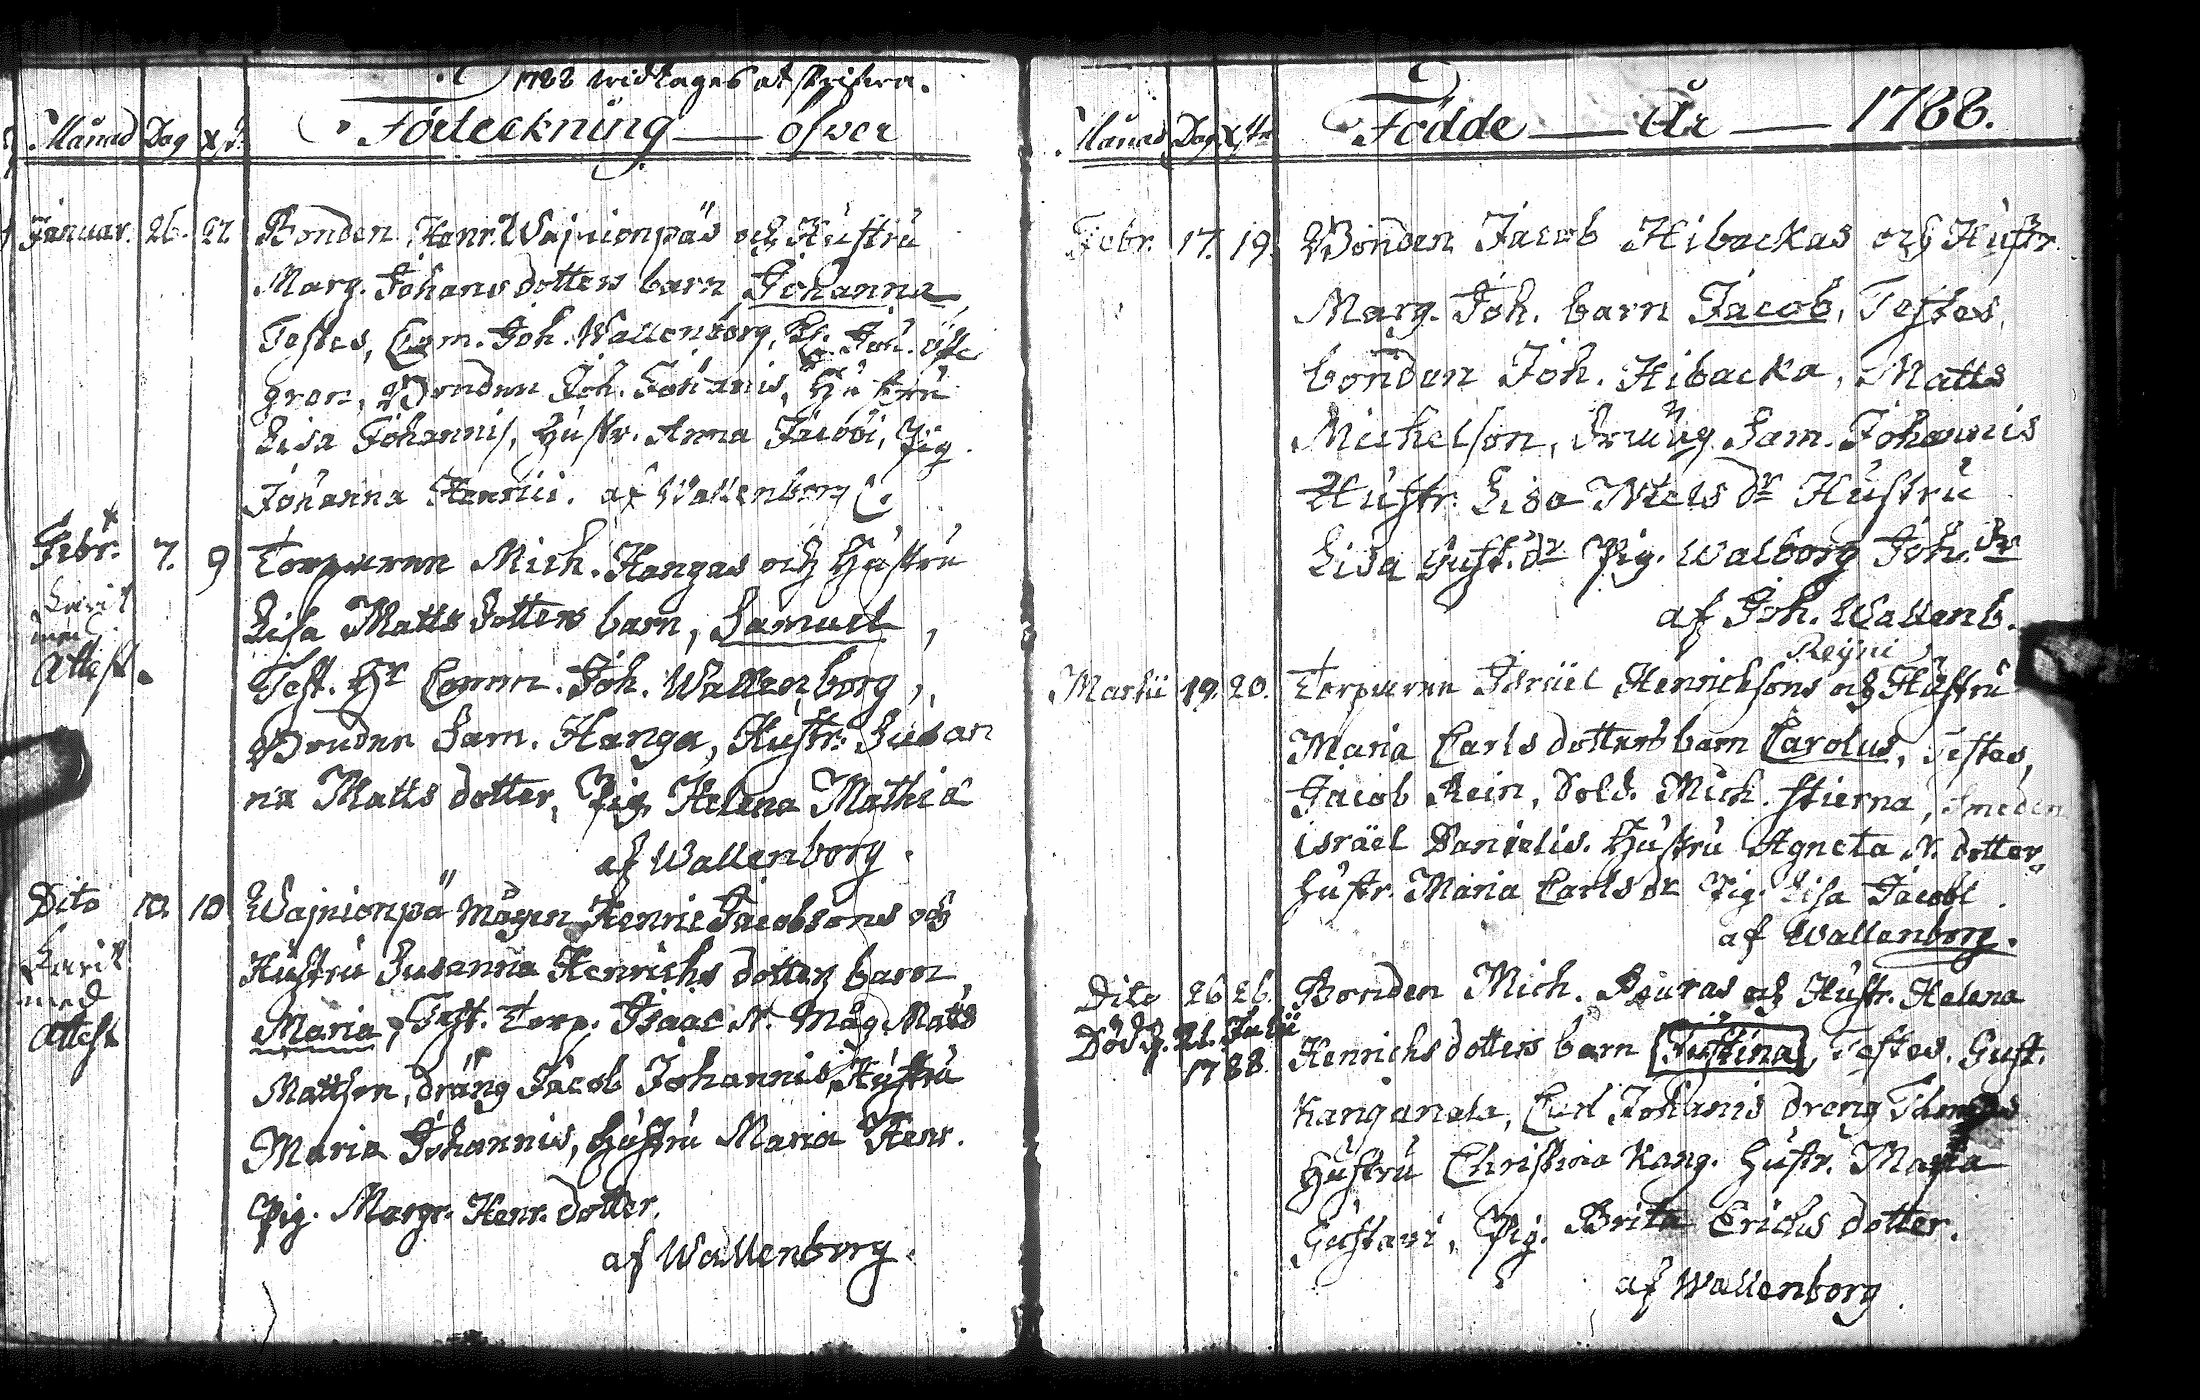 1788 widtages at skrifwa.
Månad Dag X,t. Förteckning — öfwer
Januar. 26. 27. Bonden Henr. Wajnionpäs och Hustru
Marg. Johans dotters barn Johanna,
Testes, Com. Joh. Wallenborg, Joh. Öfte
gren, Bonden Joh. Johannis, Hustru
Lisa Johannis, Hustr. Anna Jacobi, Pig.
Johanna Henrici. af Wallenborg C.
Febr. 7. 9 Torparen Mich. Hangas och Hustru
Lisa Matts dotters barn, Samuel,
med
Attest. Test. Hr Comm. Joh. Wallenborg,
Bonden Sam. Hanga, Hustr. Susan
na Matts dotter, Pig. Helena Mathiæ
af Wallenborg.
Dito 10. 10 Wajnionpä Mågen Henric Jacobsons och
Hustru Susanna Henrichs dotters barn
med
Attest Maria, Test. Torp. Isaac N. Måg Matts
Mattson, dräng Jacob Johannis, Hustru
Maria Johannis, Hustru Maria Henr.
Pig. Margr. Henr. dotter.
af Wallenborg.
Månad Dag X,tn Födde — År — 1788.
Febr. 17. 19. Bonden Jacob Hibackas och Hustr.
Marg. Joh. barn Jacob, Testes,
bonden Joh. Hibacka, Matts
Michelson, Dräng Sam. Johannis
Hustr. Lisa Niels dr Hustru
Lisa Gust. dr Pig. Walborg Joh. dr
af Joh. Wallenb.
Reijni
Martii 19. 20. Torparen Israël Henrichsons och Hustru
Maria Carls dotters barn Carolus, Testes,
Jacob Rein, Sold. Mich. Stierna, Smeden
israël Danielis. Hustru Agneta N. dotter,
Hustr. Maria Carls dr Pig. Lisa Jacobi
af Wallenborg.
Dito 26 26. Bonden Mich. Pouras och Hustr. Helena
Död d. 21. Julii
1788. Henrichs dotters barn Justina, Testes. Gust.
Kangancla, Carl Johanis dreng Thomas
Hustru Christina Kang. Hustr. Maria
Gustavi, Pig. Brita Erichs dotter.
af Wallenborg.